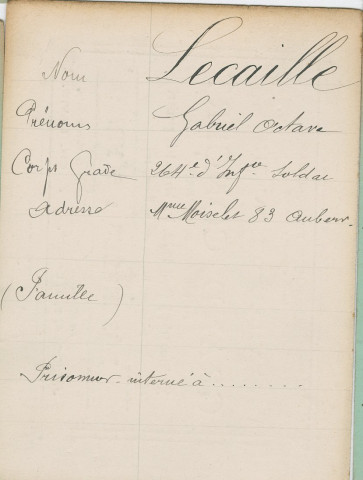 Nom Lecaille
Prénoms Gabriel Octave
Corps Grade 264e d'Infie Soldat
Adresse Mme Moiselet 83 Auberv.
(Famille)
Prisonnier interné à ........